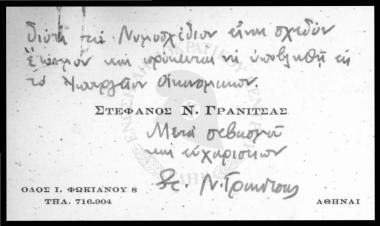 διότι τό Νομοσχέδιον εἶναι σχεδόν
ἕτοιμον καί πρόκειται νά ὑποβληθῇ εἰς
τό Ὑπουργεῖον Οἰκονομικῶν.
ΣΤΕΦΑΝΟΣ Ν. ΓΡΑΝΙΤΣΑΣ
Μετά σεβασμοῦ
καί εὐχαριστιῶν
Στ. Ν. Γρανίτσας
ΟΔΟΣ Ι. ΦΩΚΙΑΝΟΥ 8
ΤΗΛ. 716.904
ΑΘΗΝΑΙ